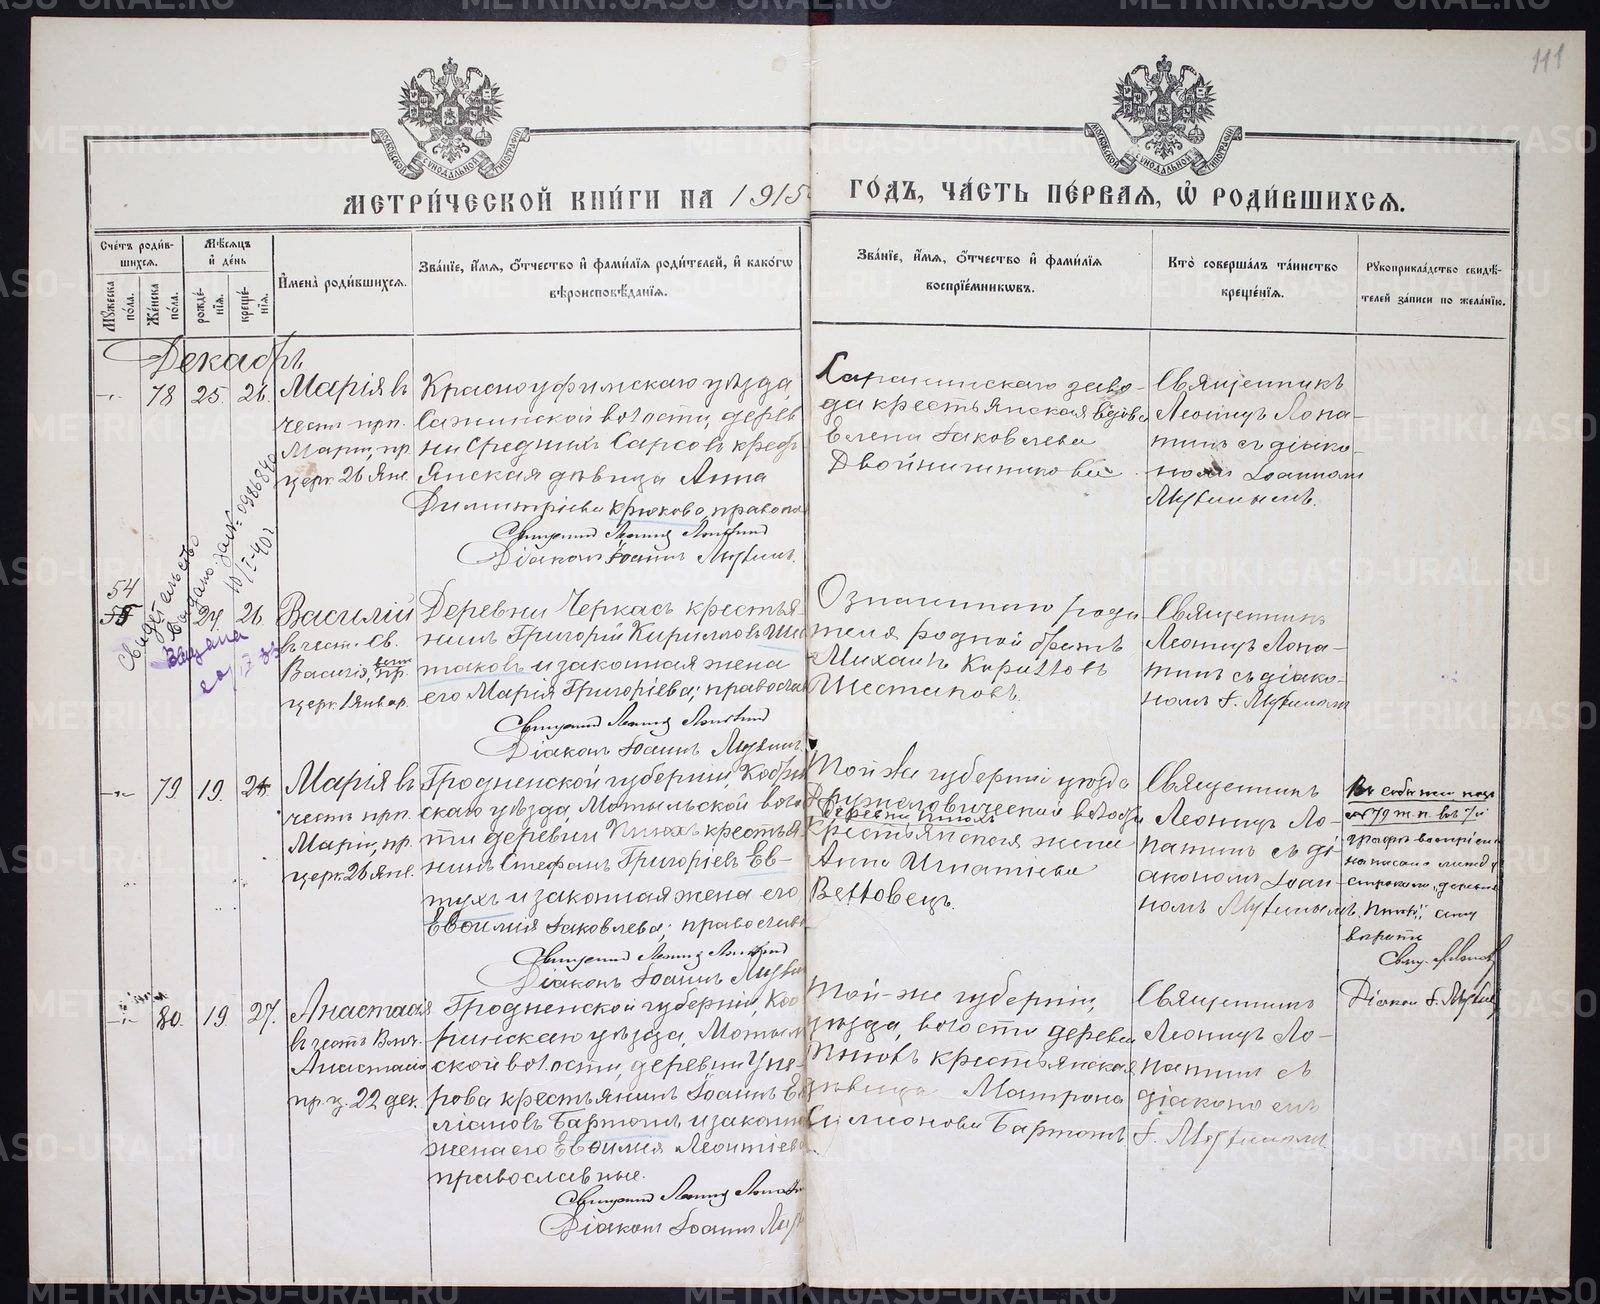 111
МОСКОВСКОЙ СѴНОДАЛЬНОЙ ТИПОГРАФІИ
МОСКОВСКОЙ СѴНОДАЛЬНОЙ ТИПОГРАФІИ
МЕТРИ́ЧЕСКОЙ КНИ́ГИ НА 1915 ГО́ДЪ, ЧА́СТЬ ПЕ́РВАѦ, Ѡ҆ РОДИ́ВШИХСѦ.
Сче́тъ роди́в-
шихсѧ.
Мꙋ́жеска по́ла.
Же́нска по́ла.
Мѣ́сѧцъ и҆ де́нь
рожде́-нїѧ.
креще́-нїѧ.
И҆мена̀ роди́вшихсѧ.
Зва́нїе, и҆́мѧ, ѻ҆́тчество и҆ фами́лїѧ роди́телей, и҆ како́гѡ
вѣроисповѣ́данїѧ.
Зва́нїе, и҆́мѧ, ѻ҆́тчество и҆ фами́лїѧ
воспрїе́мникѡвъ.
Кто̀ соверша́лъ та́инство
креще́нїѧ.
Рꙋкоприкла́дство свидѣ́-
телей за́писи по жела́нїю.
Декабрь
78 25. 26.
Марія въ
честь прп.
Маріи, пр.
церк. 26 Янв.
Красноуфимскаго уѣзда,
Сажинской волости, дерев
ни Средних Сарсовъ кресть
янская дѣвица Анна
Димитріева Крюкова, правосл
Священникъ Леонид Лопатинъ
Діаконъ Іоаннъ Мутинъ.
Саранинскаго заво-
да крестьянская вдова
Елена Іаковлева
Двойнишникова
Священникъ
Леонидъ Лопа-
тинъ съ діако-
номъ Іоанномъ
Мутинымъ.
Свидѣтельство
Выдано
10/I-40 г.
Выдана
54
55 24 26
Василій
въ честь Св.
Василія,
церк. 1 январ.
Деревни Черкасъ крестья-
нинъ Григорій Кирилловъ Шес
таковъ и законная жена
его Марія Григоріева; правосла
Священникъ Леонид Лопатинъ
Діаконъ Іоаннъ Мутинъ.
Означеннаго роди
теля родной братъ
Михаилъ Кирилловъ
Шестаковъ.
Священникъ
Леонидъ Лопа-
тинъ съ діако-
номъ І. Мутинымъ
79 19. 26.
Марія въ
честь прп.
Маріи, пр.
церк. 26 Янв.
Гродненской губерніи, Кобрин
скаго уѣзда, Мотыльской волос
ти деревни Пнюхъ крестья-
нинъ Стефанъ Григоріевъ Ев-
тухъ и законная жена его
Евѳимія Іаковлева; православн
Священникъ Леонид Лопатинъ
Діаконъ Іоаннъ Мутин
Той же губерніи уѣзда
Дружиловической волости
деревни Пнюхъ
крестьянская жена
Анна Игнатіева
Веттовецъ.
Священникъ
Леонидъ Ло-
патинъ съ ді
акономъ Іоан-
номъ Мутинымъ
79 ж. п. въ 7й
графѣ
написано между
строками „деревни
Пнюхъ",
вѣрить
Свящ. Л. Лопат
Діаконъ І. Мутинъ
80. 19. 27.
Анастасія
въ честь Влмч.
Анастасіи
пр. ц. 22 дек.
Гродненской губерніи, Коб
ринскаго уѣзда, Мотыль
ской волости, деревни Упе-
рова крестьянинъ Іоаннъ Ем
ліановъ Бартошъ и законная
жена его Евѳимія Леонтіева
православные.
Священникъ Леонид Лопатин
Діаконъ Іоаннъ Мут
Той-же губерніи,
уѣзда, волости деревни
Пнюхъ крестьянская
дѣвица Матрона
Симионова Бартошъ
Священникъ
Леонидъ Ло-
патинъ съ
діакономъ
І. Мутинымъ
METRIKI.GASO-URAL.RU